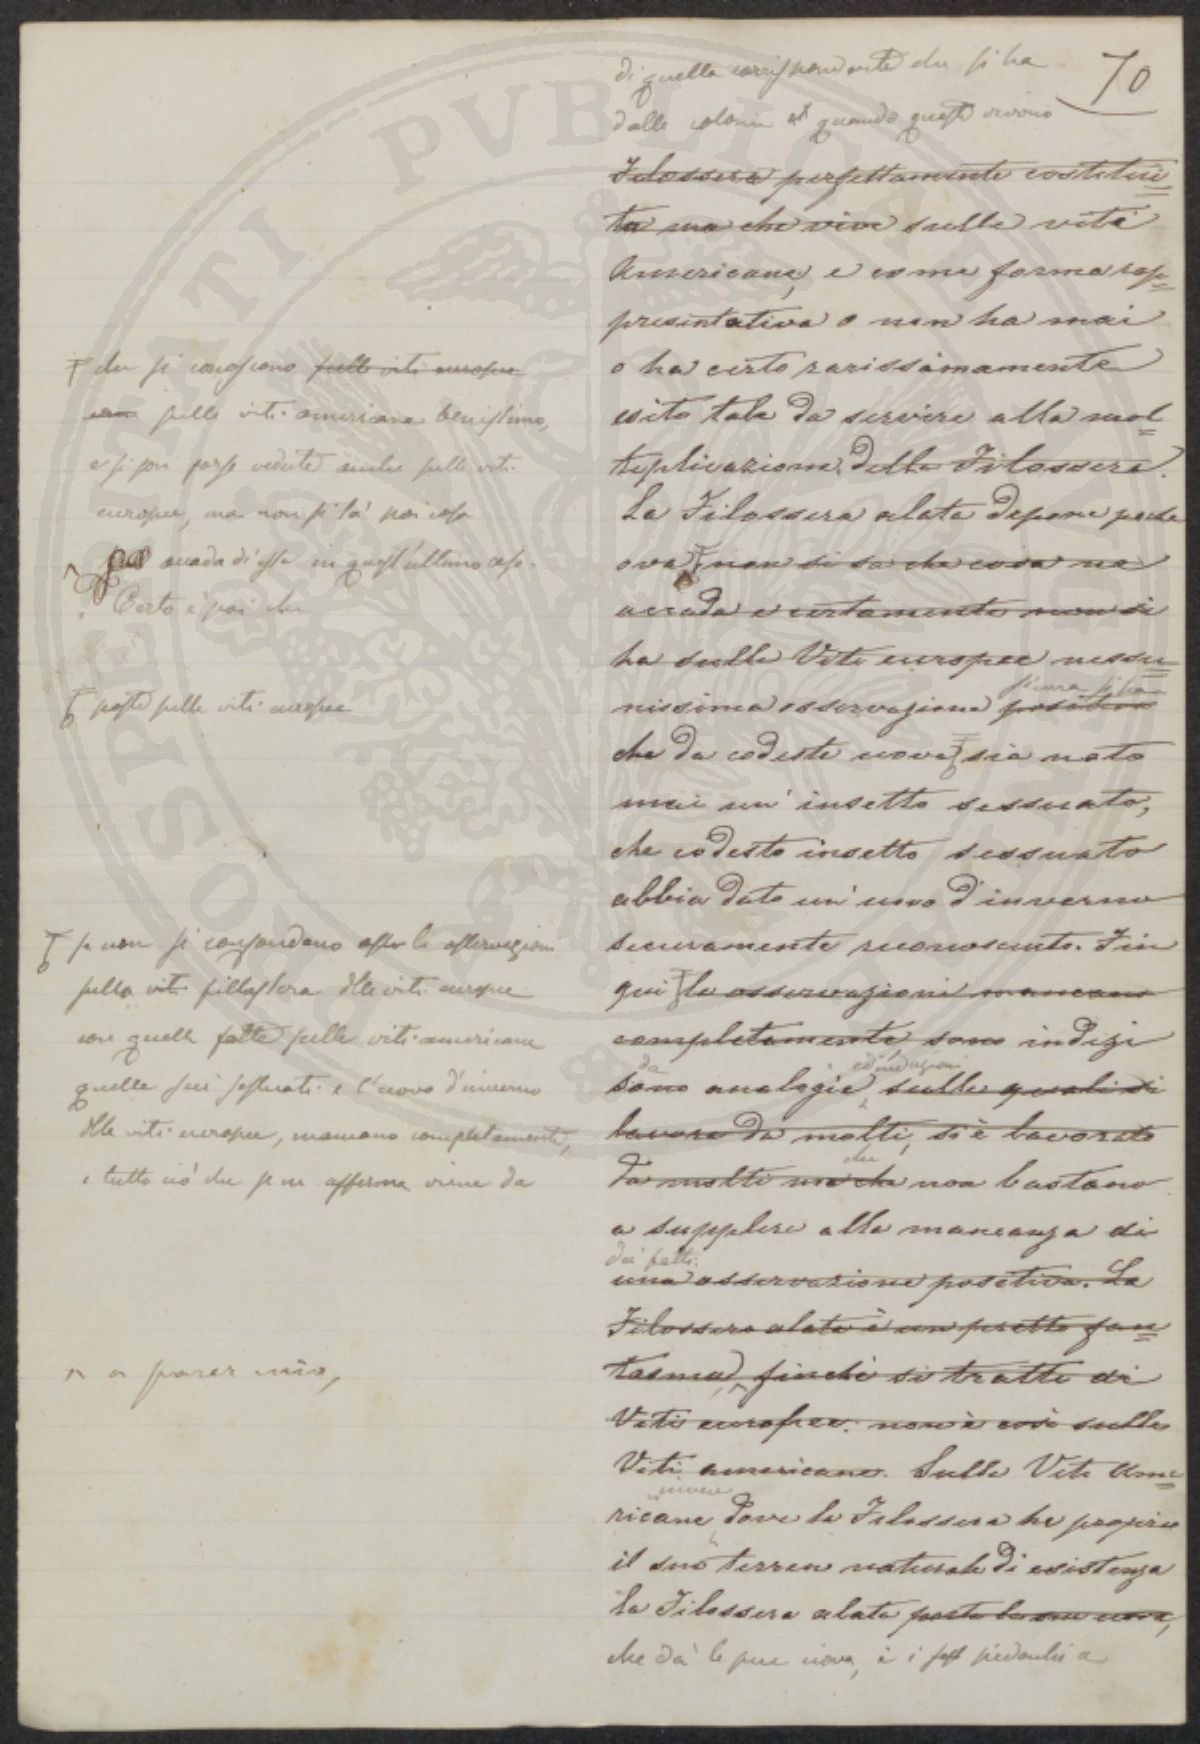 70
di quella corrispondente che si ha
dalle colonie quando queste vivono
Filossera perfettamente costitui
ta ma che vive sulle viti
Americane, e come forma rap
presentativa o non ha mai
o ha certo rarissimamente
esito tale da servire alla mol
tiplicazione della Filossera.
La Filossera alata depone poche
ova non si sa che cosa ne
accada e certamente non si
ha sulle Viti europee nessu
nissima osservazione positiva
sicura
che da codeste uova sia nato
mai un' insetto sessuato,
che codesto insetto sessuato
abbia dato un' uovo d'inverno
sicuramente riconosciuto. Fin
qui le osservazioni mancano
completamente sono indizi
da
sono analogie, sulle quali si
ed induzioni
lavora da molti, si è lavorato
da molti ma che non bastano
che
a supplire alla mancanza di
dei fatti.
una osservazione positiva. La
Filossera alata è un pretto fan
tasma, finchè si tratta di
Viti europee: non è così sulle
Viti americane. Sulle Viti Ame
ricane dove la Filossera ha proprio
invece
il suo terreno naturale di esistenza
la Filossera alata porta le sue uova,
che dà le sue uova, e i
che si conoscono sulle viti europee
sulle viti americane benissimo,
e si son forse vedute anche sulle viti
europee, ma non si sa poi cosa
accada d'esse in quest'ultimo caso.
Certo è poi che
poste sulle viti europee
se non si confondano le osservazioni
sulla fillossera delle viti europee
con quelle fatte sulle viti americane
quelle sui sessuati e l'uovo d'inverno
delle viti europee, mancano completamente,
e tutto ciò che se ne afferma viene da
a parer mio,
PROSPERITATI PUBLICAE